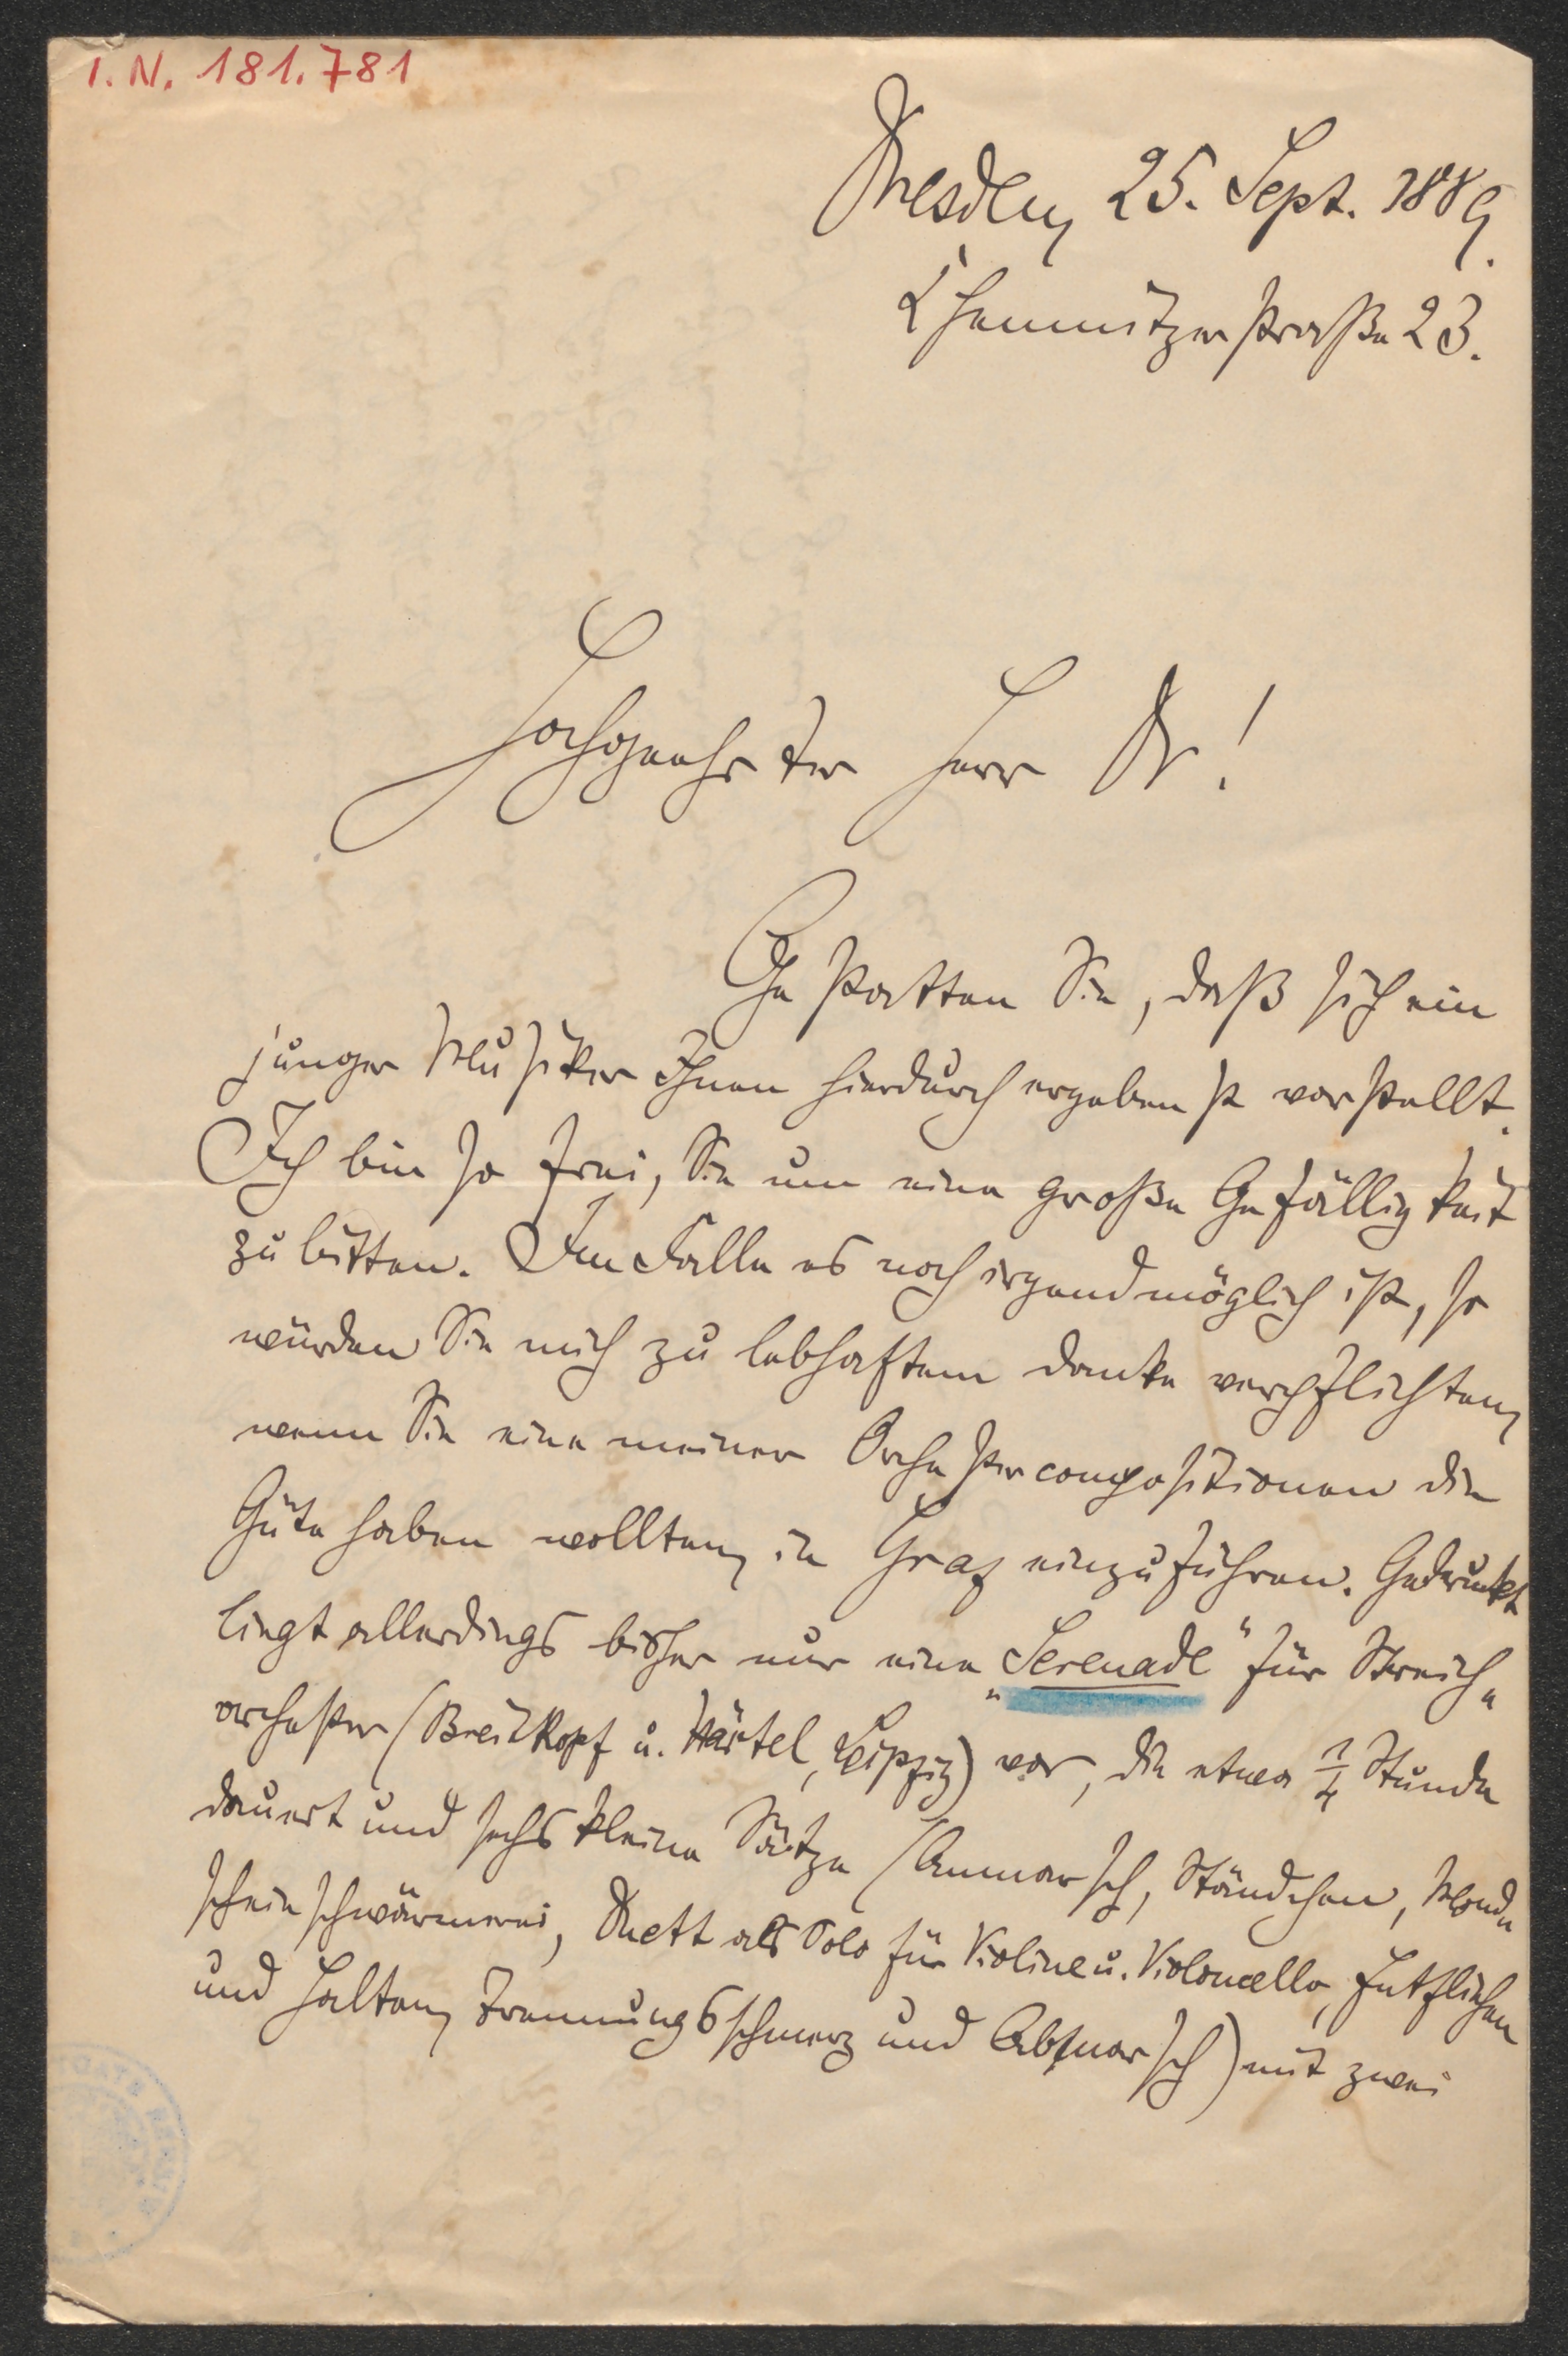 I.N. 181.781
Dresden, 25. Sept. 1889.
Chemnitzerstraße 23.
Hochgeehrter Herr Dr!
Gestatten Sie, daß sich ein
junger Musiker Ihnen hierdurch ergebenst vorstellt.
Ich bin so frei, Sie um eine große Gefälligkeit
zu bitten. Im Falle es noch irgend möglich ist, so
würden Sie mich zu lebhaftem Danke verpflichten,
wenn Sie eine meiner Orchestercompositionen die
Güte haben wollten, in Graz einzuführen. Gedruckt
liegt allerdings bisher nur eine „Serenade" für Streich-
orchester (Breitkopf u. Härtel, Leipzig) vor, die etwa 1/4 Stunde
dauert und sechs kleine Sätze (Anmarsch, Ständchen, Mond-
scheinschwärmerei, Duett als Solo für Violine u. Violoncello, Entfliehen
und Halten, Trennungsschmerz und Abmarsch) mit zwei